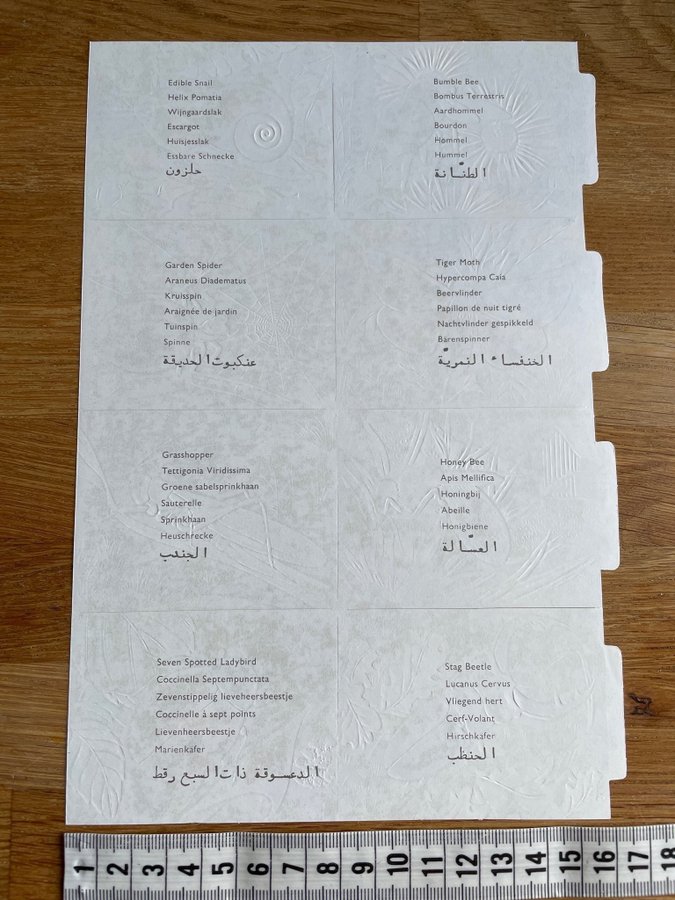 Edible Snail
Helix Pomatia
Wijngaardslak
Escargot
Huisjesslak
Essbare Schnecke
حلزون
Bumble Bee
Bombus Terrestris
Aardhommel
Bourdon
Hommel
Hummel
الطنّانة
Garden Spider
Araneus Diadematus
Kruisspin
Araignée de jardin
Tuinspin
Spinne
عنكبوت الحديقة
Tiger Moth
Hypercompa Caia
Beervlinder
Papillon de nuit tigré
Nachtvlinder gespikkeld
Bärenspinner
الخنفساء النمريّة
Grasshopper
Tettigonia Viridissima
Groene sabelsprinkhaan
Sauterelle
Sprinkhaan
Heuschrecke
الجندب
Honey Bee
Apis Mellifica
Honingbij
Abeille
Honigbiene
العسّالة
Seven Spotted Ladybird
Coccinella Septempunctata
Zevenstippelig lieveheersbeestje
Coccinelle à sept points
Lievenheersbeestje
Marienkäfer
الدعسوقة ذات السبع رقط
Stag Beetle
Lucanus Cervus
Vliegend hert
Cerf-Volant
Hirschkäfer
الحنظب
1 2 3 4 5 6 7 8 9 10 11 12 13 14 15 16 17 18